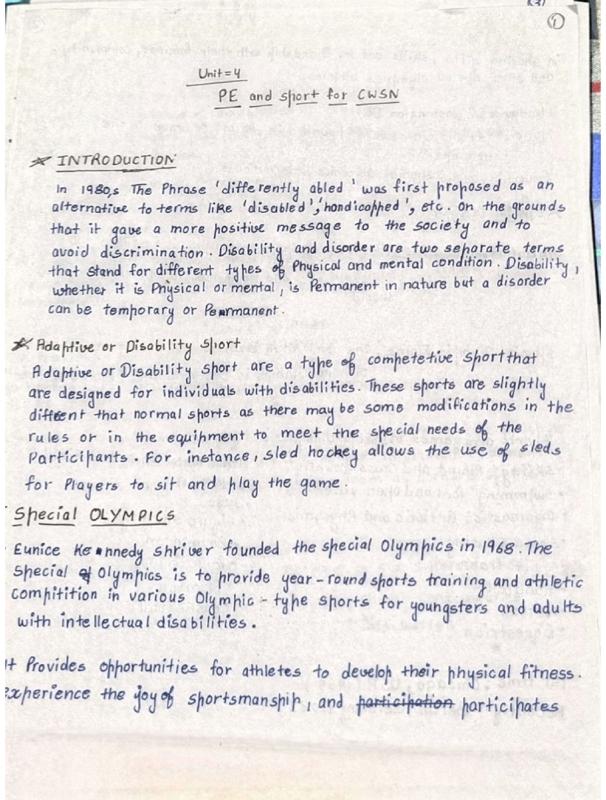 ①
Unit = 4
PE and sport for CWSN
INTRODUCTION
In 1980,s The Phrase 'differently abled' was first proposed as an
alternative to terms like 'disabled','handicopped', etc. On the grounds
that it gave a more positive message to the society and to
avoid discrimination. Disability and disorder are two separate terms
that stand for different types of Physical and mental condition. Disability,
whether it is Physical or mental, is Permanent in nature but a disorder
can be temporary or Permanent.
Adaptive or Disability sport
Adaptive or Disability sport are a type of competetive sport that
are designed for individuals with disabilities. These sports are slightly
different that normal sports as there may be some modifications in the
rules or in the equipment to meet the special needs of the
Participants. For instance, sled hockey allows the use of sleds
for Players to sit and play the game.
Special OLYMPICS
Eunice Kennedy shriver founded the special Olympics in 1968. The
special Olympics is to provide year-round sports training and athletic
compitition in various Olympic-type sports for youngsters and adults
with intellectual disabilities.
It Provides opportunities for athletes to develop their physical fitness.
experience the joy of sportsmanship, and participation participates